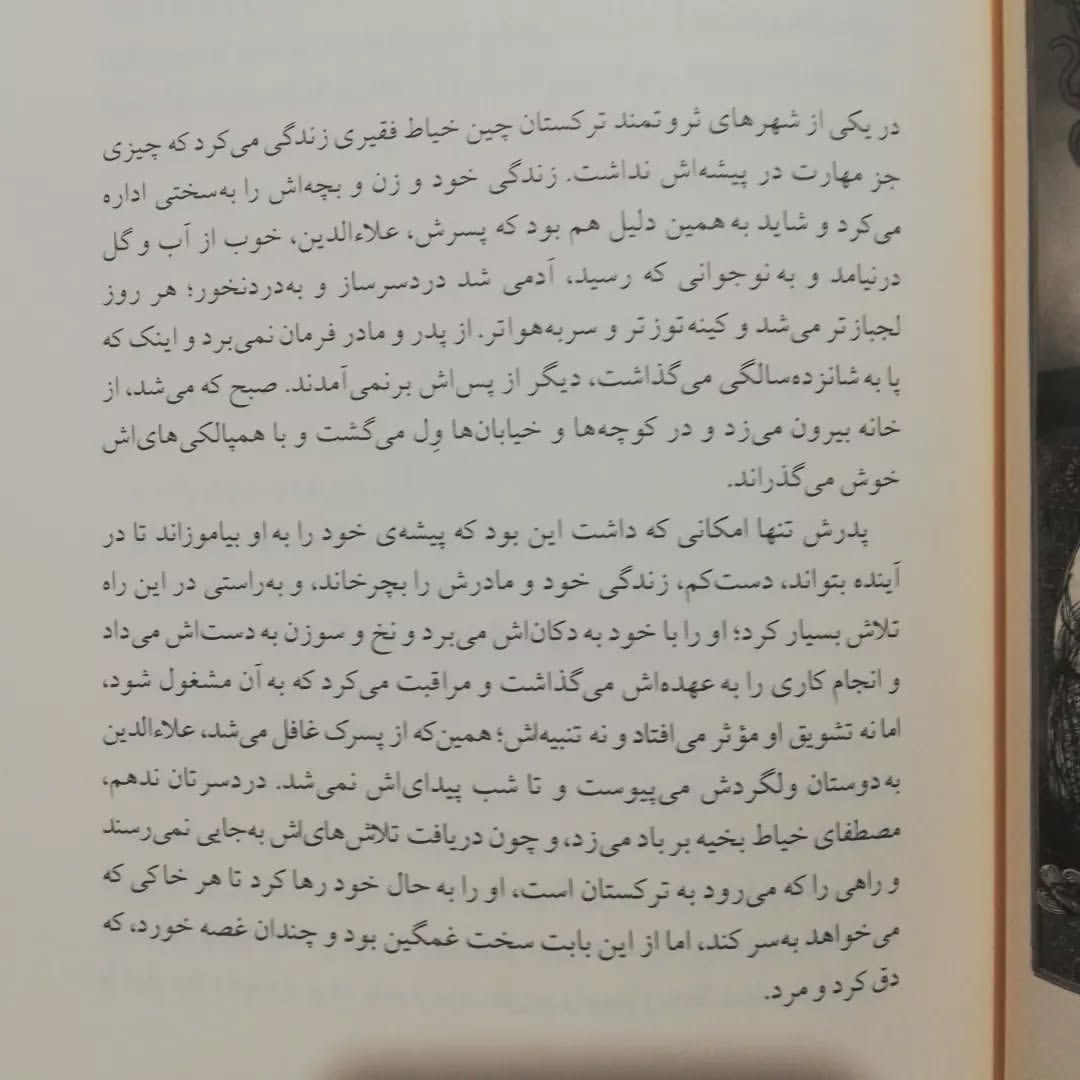 در یکی از شهرهای ثروتمند ترکستان چین خیاط فقیری زندگی می‌کرد که چیزی
جز مهارت در پیشه‌اش نداشت. زندگی خود و زن و بچه‌اش را به‌سختی اداره
می‌کرد و شاید به همین دلیل هم بود که پسرش، علاءالدین، خوب از آب و گل
درنیامد و به نوجوانی که رسید، آدمی شد دردسرساز و به‌دردنخور؛ هر روز
لجبازتر می‌شد و کینه‌توزتر و سربه‌هواتر. از پدر و مادر فرمان نمی‌برد و اینک که
پا به شانزده‌سالگی می‌گذاشت، دیگر از پس‌اش برنمی‌آمدند. صبح که می‌شد، از
خانه بیرون می‌زد و در کوچه‌ها و خیابان‌ها وِل می‌گشت و با همپالکی‌های‌اش
خوش می‌گذراند.
پدرش تنها امکانی که داشت این بود که پیشه‌ی خود را به او بیاموزاند تا در
آینده بتواند، دست‌کم، زندگی خود و مادرش را بچرخاند، و به‌راستی در این راه
تلاش بسیار کرد؛ او را با خود به دکان‌اش می‌برد و نخ و سوزن به دست‌اش می‌داد
و انجام کاری را به عهده‌اش می‌گذاشت و مراقبت می‌کرد که به آن مشغول شود،
اما نه تشویق او مؤثر می‌افتاد و نه تنبیه‌اش؛ همین‌که از پسرک غافل می‌شد، علاءالدین
به دوستان ولگردش می‌پیوست و تا شب پیدای‌اش نمی‌شد. دردسرتان ندهم،
مصطفای خیاط بخیه بر باد می‌زد، و چون دریافت تلاش‌های‌اش به‌جایی نمی‌رسند
و راهی را که می‌رود به ترکستان است، او را به حال خود رها کرد تا هر خاکی که
می‌خواهد به‌سر کند، اما از این بابت سخت غمگین بود و چندان غصه خورد، که
دق کرد و مرد.